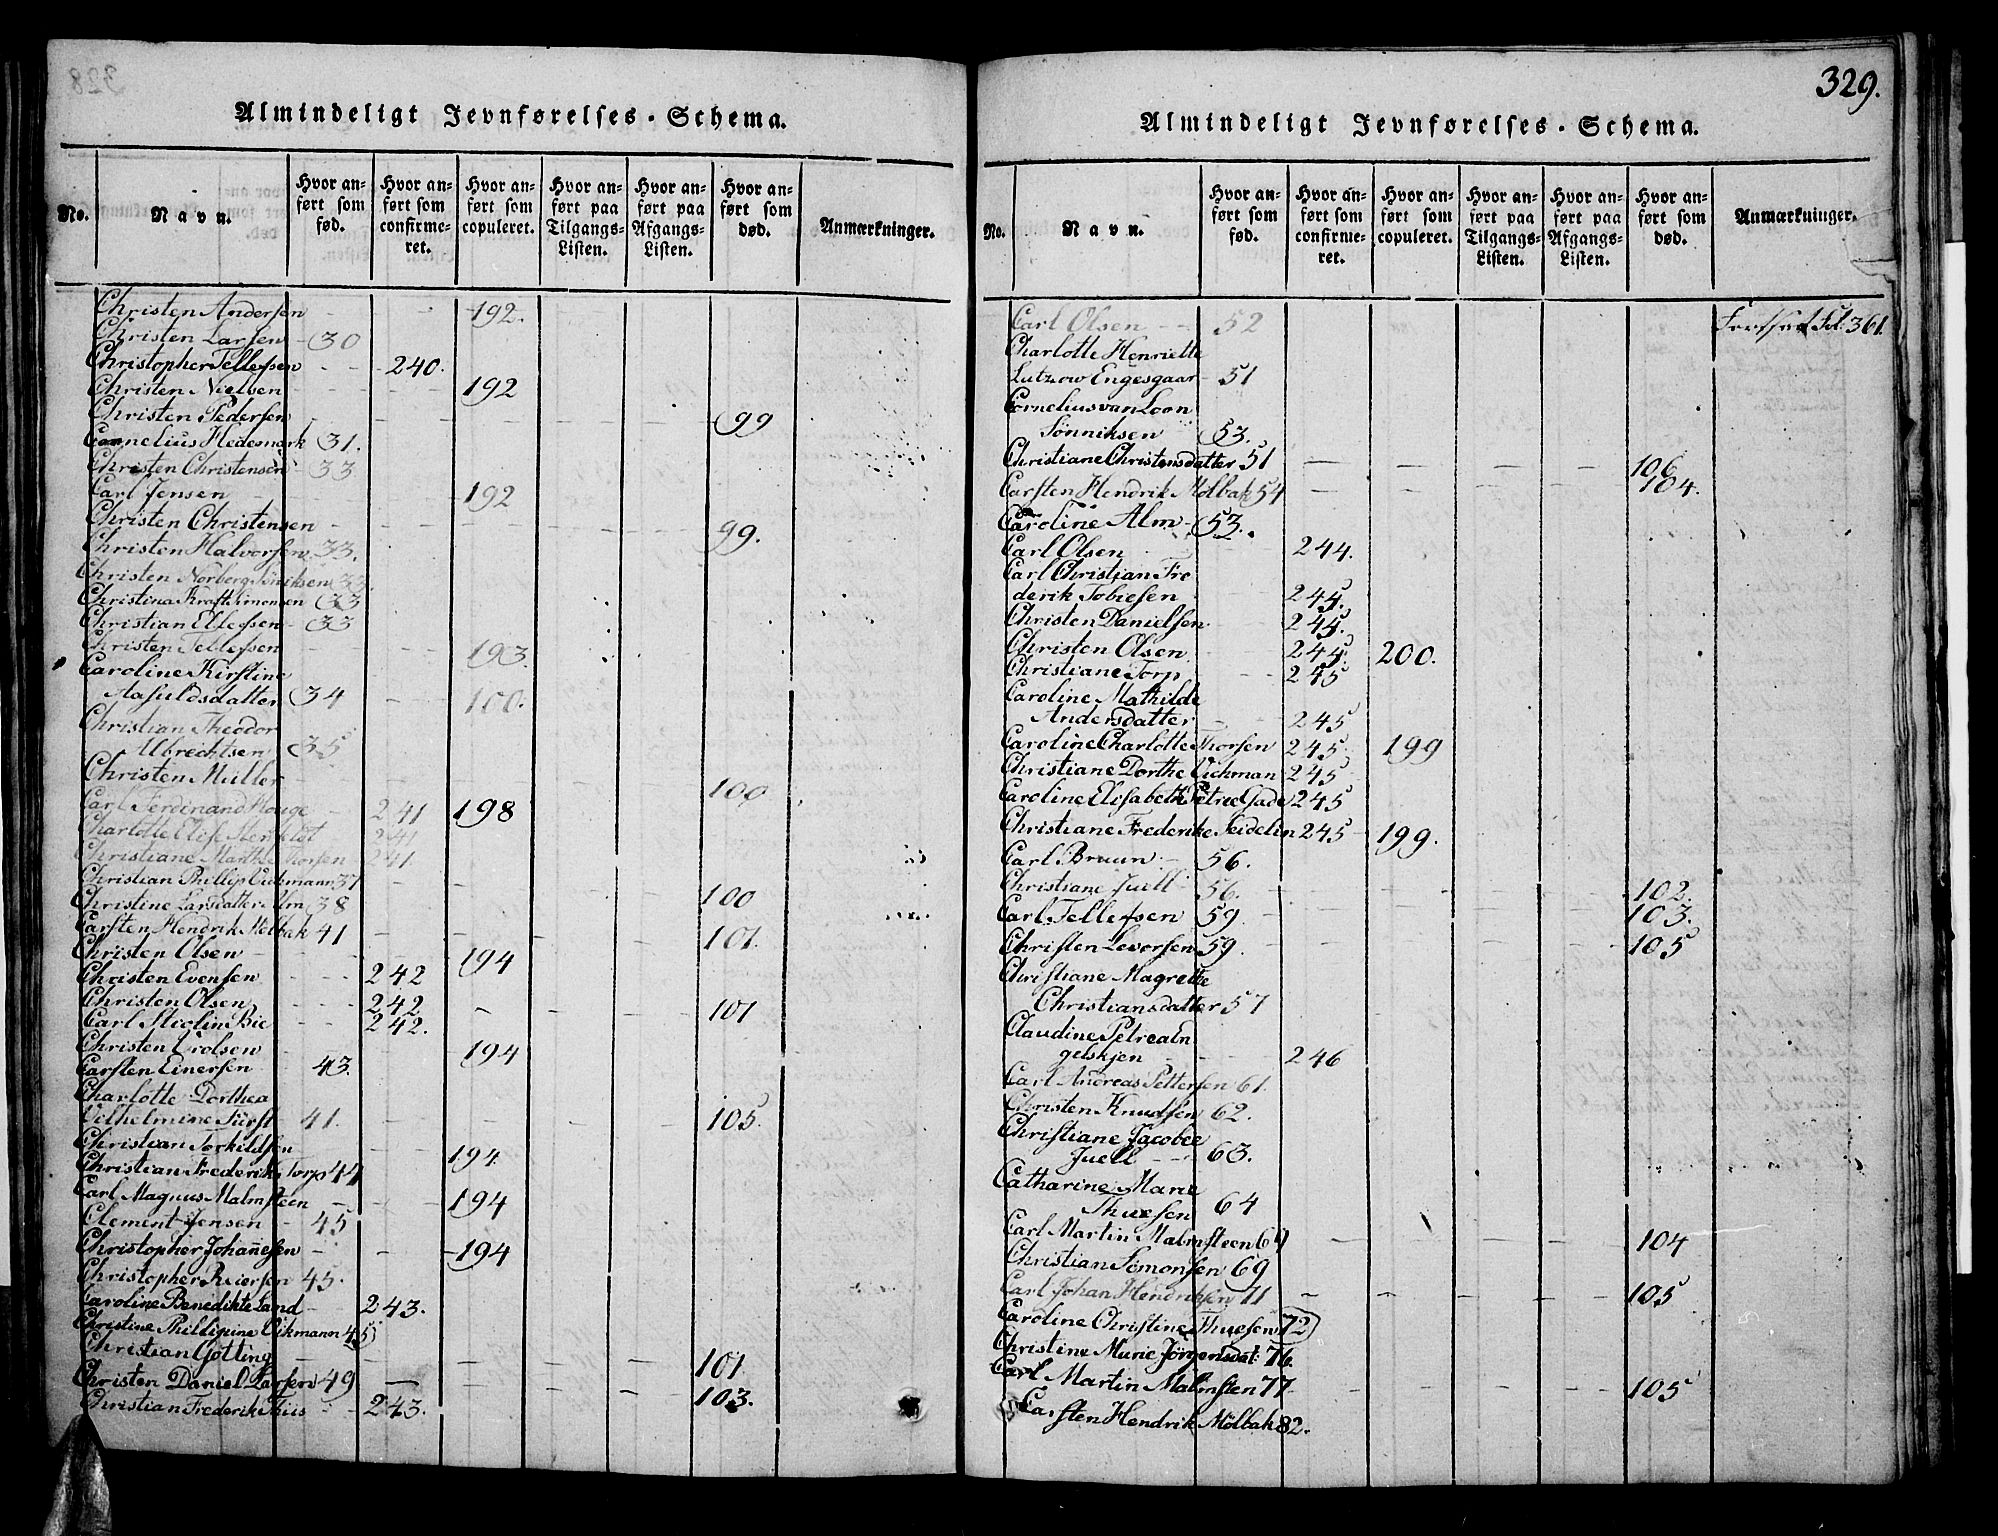 328
Almindeligt Jevnførelses-Schema.
No.
Navn.
Hvor anført som fød.
Hvor anført som confirmeret.
Hvor anført som copuleret.
Hvor anført paa Tilgangs-Listen.
Hvor anført paa Afgangs-Listen.
Hvor anført som død.
Anmærkninger.
Christen Andersen 192.
Christen Larsen 30
Christopher Tellefsen 240.
Christen Nielsen 192
Christen Pedersen 99
Cornelius Hedemark 31.
Christen Christensen 33
Carl Jensen 192
Christen Christensen 99.
Christen Halvorsen 33.
Christen Norberg Søniksen 33
Christina Kraft Simonsen 33
Christian Ellefsen 33
Christen Tellefsen 193.
Caroline Kirstine
Aasuldsdatter 34 100.
Christian Theodor
Albrechtsen 35
Christen Muller 100
Carl Ferdinand Houge 241 198
Charlotte 241
Christiane Marthe Thorsen 241
Christian Phillip Vichmann 37
Christine Larsdatter Alm 38 100
Carsten Hendrik Mølbak 41 101.
Christen Olsen 194
Christen Evensen 242
Christen Olsen 242 101
Carl Stiolin Bie 242.
Christen Trolsen 194
Carsten Einersen 43.
Charlotte Dorthea
Vilhelmine Fürst 41. 105.
Christian Torkildsen 194
Christian Frederik Torp 44
Carl Magnus Malmsteen 194
Clement Jensen 45
Christopher Johannesen 194
Christopher Reiersen 45.
Caroline Benedikte Land 243.
Christine Phillipine Vikmann 45
Christian Gøtting 101
Christen Daniel Larsen 49 103.
Christian Frederik Thiis 243.
329.
Almindeligt Jevnførelses-Schema.
No.
Navn.
Hvor anført som fød.
Hvor anført som confirmeret.
Hvor anført som copuleret.
Hvor anført paa Tilgangs-Listen.
Hvor anført paa Afgangs-Listen.
Hvor anført som død.
Anmærkninger.
Carl Olsen 52 Fortsat Fol: 361.
Charlotte Henriette
Lutzow Engesgaar 51
Cornelius van Loon
Sønniksen 53.
Christiane Christensdatter 51 106
Carsten Hendrik Mølbak 54 104.
Caroline Alm 53.
Carl Olsen 244.
Carl Christian Fre
derik Tobiesen 245.
Christen Danielsen 245.
Christen Olsen 245. 200.
Christiane Torp 245
Caroline Mathilde
Andersdatter 245
Caroline Charlotte Thorsen 245 199
Christiane Dorthe Vichman 245
Caroline Elisabeth Petrea Gade 245
Christiane Frederike Seidelin 245 199.
Carl Bruun 56.
Christiane Juell 56. 102.
Carl Tellefsen 59. 103.
Christen Levorsen 59. 105
Christiane Magrethe
Christiansdatter 57
Claudine Petrea In
gelskjen 246
Carl Andreas Pettersen 61.
Christen Knudsen 62.
Christiane Jacobee
Juell 63.
Catharine Marie
Thuesen 64
Carl Martin Malmsteen 69 104
Christian Somonsen 69
Carl Johan Hendriksen 71 105
Caroline Christine Thuesen 72
Christine Marie Jørgensdat: 76.
Carl Martin Malmsten 77 105
Carsten Hendrik Mølbak 82.